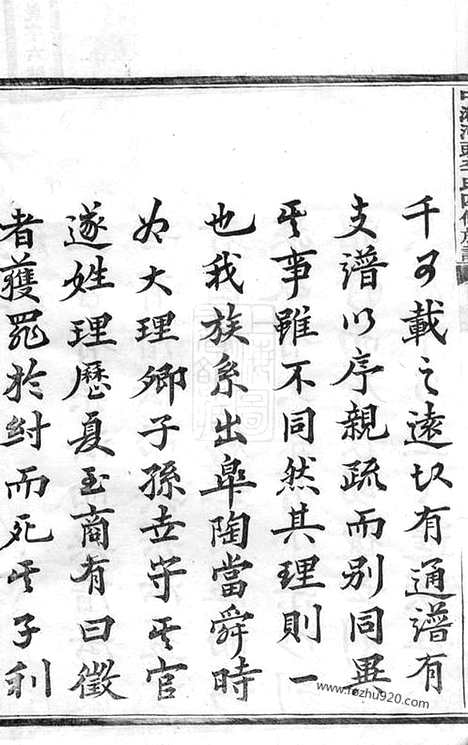 千百載之遠故有通譜有
支譜以序親疏而别同異
其事雖不同然其理則一
也我族系出皐陶當舜時
為大理卿子孫世守其官
遂姓理歷夏至商有曰徵
者獲罪於紂而死其子利
www.fozhu920.com